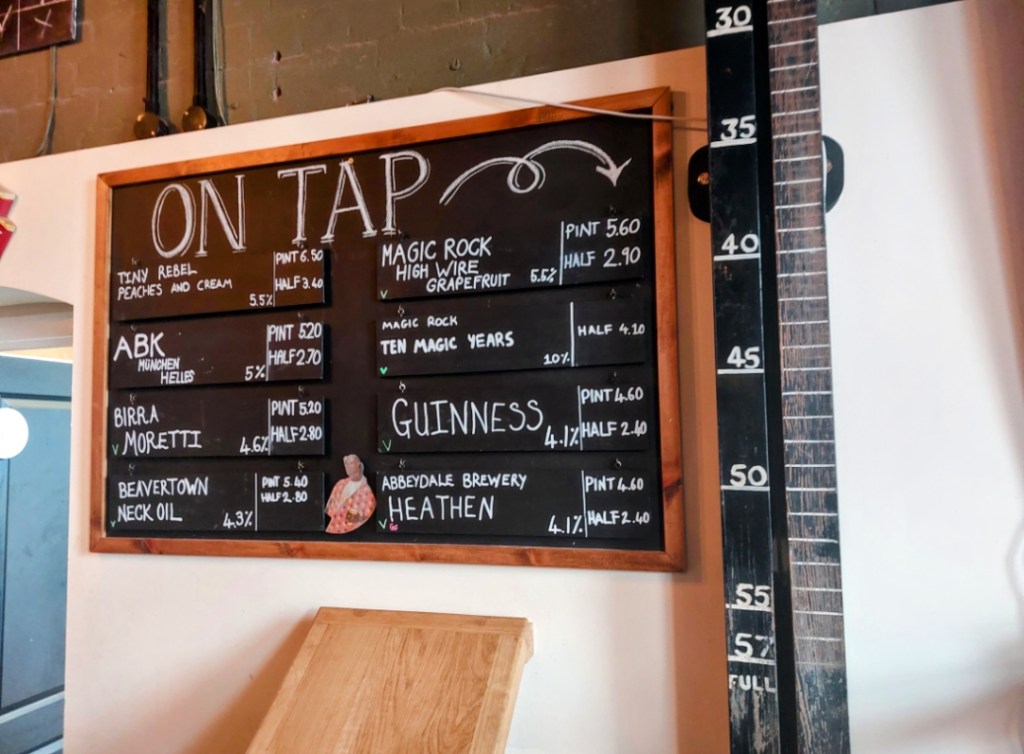 ON TAP
TINY REBEL
PEACHES AND CREAM
5.5%
PINT 6.50
HALF 3.40
ABK
MÜNCHEN
HELLES
5%
PINT 5.20
HALF 2.70
BIRRA
MORETTI
4.6%
PINT 5.20
HALF 2.80
V
BEAVERTOWN
NECK OIL
4.3%
PINT 5.40
HALF 2.80
V
MAGIC ROCK
HIGH WIRE
GRAPEFRUIT
5.5%
PINT 5.60
HALF 2.90
V
MAGIC ROCK
TEN MAGIC YEARS
10%
HALF 4.10
GUINNESS
4.1%
PINT 4.60
HALF 2.40
V
ABBEYDALE BREWERY
HEATHEN
4.1%
PINT 4.60
HALF 2.40
V G
30
35
40
45
50
55
57
FULL